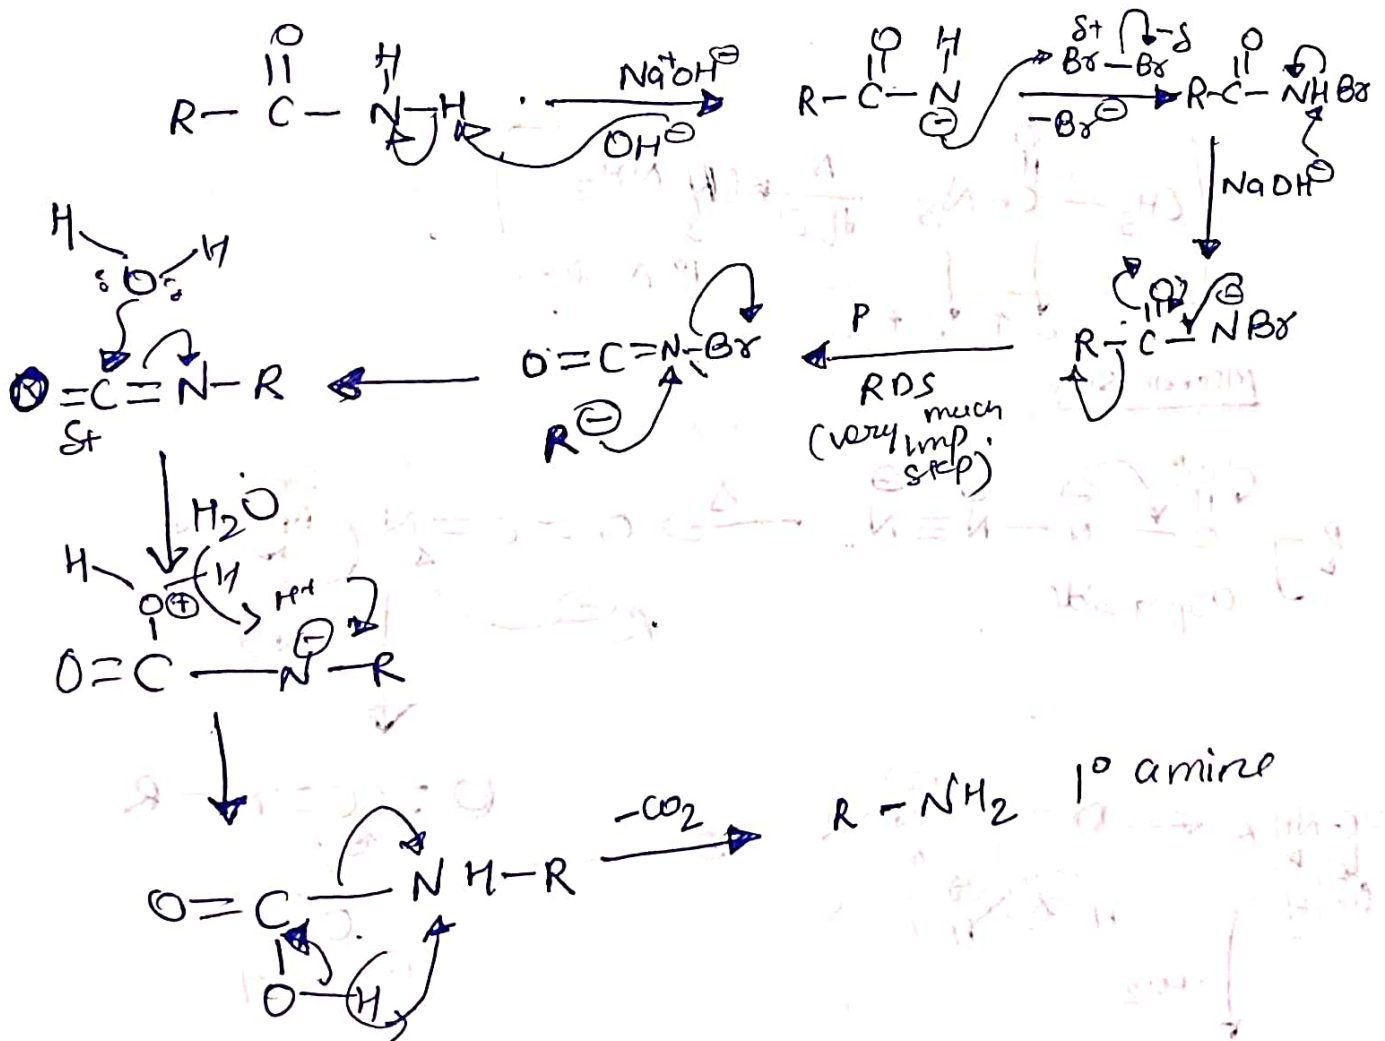 O H
R - C - N - H Na⁺OH⊖
OH⊖
O H
R - C - N⊖
δ+ -δ
Br - Br
-Br⊖
O
R - C - NHBr
NaOH⊖
O ⊖
R - C - NBr
P
RDS
(very much
imp
step)
O = C = N - Br
R⊖
H H
:O:
O = C = N - R
δ+
H₂O
H H H⁺
O⊕
O = C - N⊖ - R
O = C - NH - R
O - H
-CO₂
R - NH₂ 1° amine